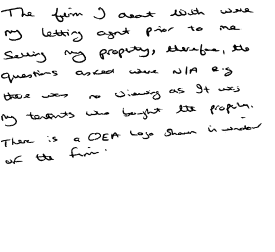 The firm I dealt with were
my letting agent prior to me
Selling my property, therefore, the
questions asked were N/A e.g
there was no viewing as It was
my tenants who bought the property.
There is a OEA Logo shown in window
of the firm.